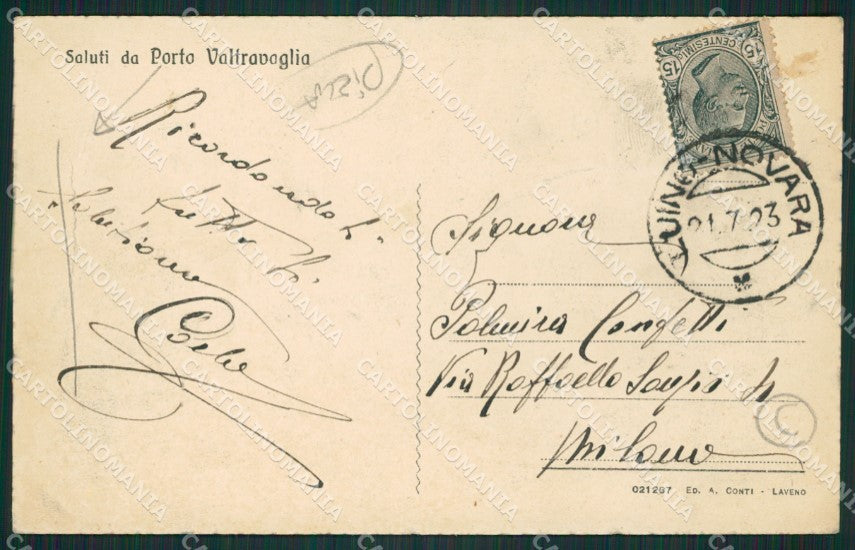 Saluti da Porto Valtravaglia
Ricordando
tutti
salutiamo
Carlo
15 CENTESIMI 15
LUINO-NOVARA
21.7.23
Signora
Palmira Confetti
Via Raffaello Sanzio 4
Milano
021287 ED. A. CONTI - LAVENO
CARTOLINOMANIA